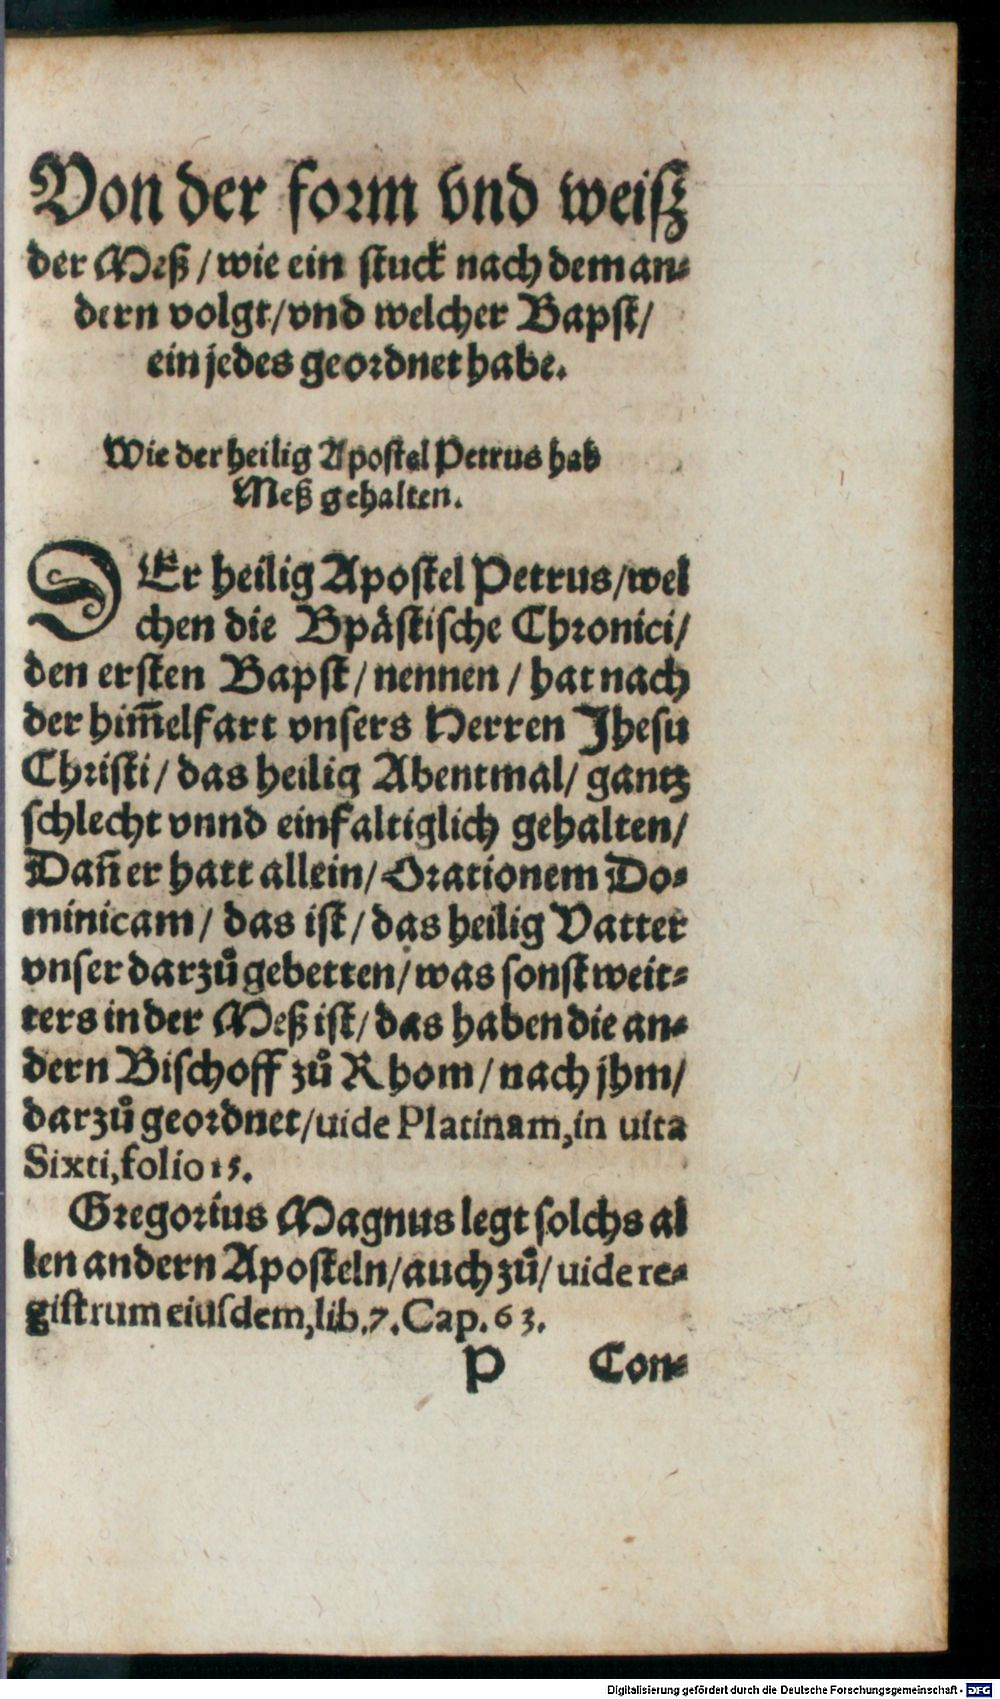 Von der form vnd weiſz
der Meß / wie ein ſtuck nach dem an-
dern volgt / vnd welcher Bapſt /
ein jedes geordnet habe.
Wie der heilig Apoſtel Petrus hab
Meß gehalten.
DEr heilig Apoſtel Petrus / wel
chen die Bpäſtiſche Chronici /
den erſten Bapſt / nennen / hat nach
der him̃elfart vnſers Herren Jheſu
Chriſti / das heilig Abentmal / gantz
ſchlecht vnnd einfaltiglich gehalten /
Dañ er hatt allein / Orationem Do-
minicam / das iſt / das heilig Vatter
vnſer darzů gebetten / was ſonſt weit-
ters in der Meß iſt / das haben die an-
dern Biſchoff zů Rhom / nach jhm /
darzů geordnet / uide Platinam, in uita
Sixti, folio 15.
Gregorius Magnus legt ſolchs al
len andern Apoſteln / auch zů / uide re-
giſtrum eiuſdem, lib. 7. Cap. 63.
P Con-
Digitalisierung gefördert durch die Deutsche Forschungsgemeinschaft - DFG